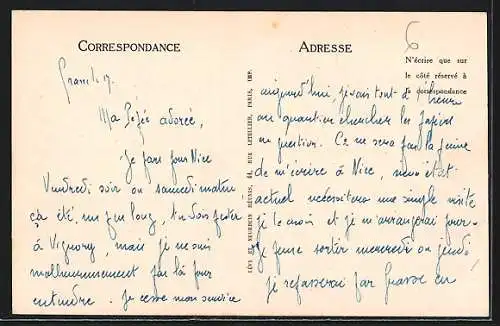 CORRESPONDANCE
Grasse le 17.
Ma Pépée adorée,
Je pars pour Nice
Vendredi soir ou samedi matin
ça été, un peu long, tu dois fester
à Vignory, mais je ne suis
malheureusement pas là pour
entendre. Je cesse mon service
LÉVY ET NEURDEIN RÉUNIS, 44, RUE LETELLIER, PARIS, IMP.
ADRESSE
6
N'écrire que sur
le côté réservé à
la correspondance
aujourd'hui, je vais tout à l'heure
au quartier chercher les papiers
en question. Ce ne sera pas la peine
de m'écrire à Nice, mon état
actuel nécessitera une simple visite
je le crois et je m'arrangerai pour
je pense sortir mercredi ou jeudi
je repasserai par Grasse en